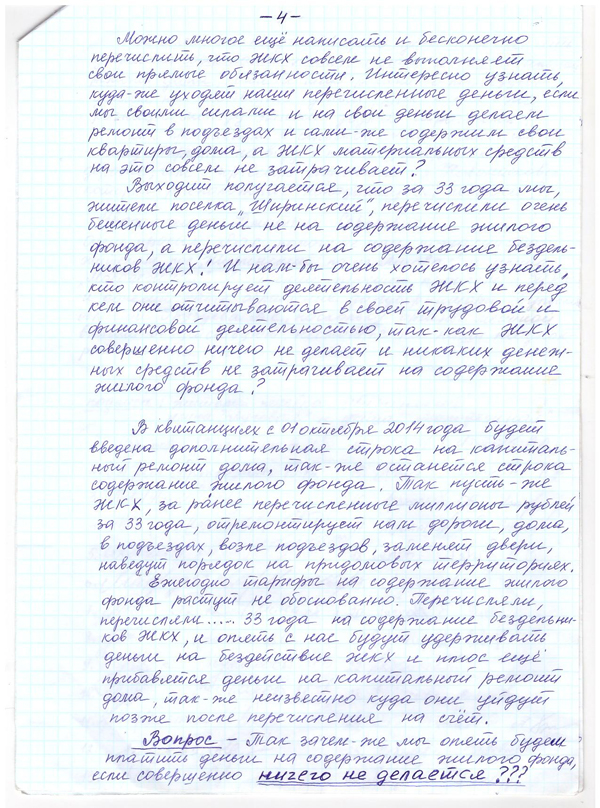 -4-
Можно многое ещё написать и бесконечно
перечислить, что ЖКХ совсем не выполняет
свои прямые обязанности. Интересно узнать,
куда-же уходят наши перечисленные деньги, если
мы своими силами и на свои деньги делаем
ремонт в подъездах и сами-же содержим свои
квартиры, дома, а ЖКХ материальных средств
на это совсем не затрачивает?
Выходит получается, что за 33 года мы,
жители поселка „Ширинский", перечислили очень
бешенные деньги не на содержание жилого
фонда, а перечислили на содержание бездель-
ников ЖКХ! И нам-бы очень хотелось узнать,
кто контролирует деятельность ЖКХ и перед
кем они отчитываются в своей трудовой и
финансовой деятельностью, так-как ЖКХ
совершенно ничего не делает и никаких денеж-
ных средств не затрачивает на содержание
жилого фонда?
В квитанциях с 01 октября 2014 года будет
введена дополнительная строка на капиталь-
ный ремонт дома, так-же останется строка
содержание жилого фонда. Так пусть-же
ЖКХ, за ранее перечисленные миллионы рублей
за 33 года, отремонтирует нам дороги, дома,
в подъездах, возле подъездов, заменят двери,
наведут порядок на придомовых территориях.
Ежегодно тарифы на содержание жилого
фонда растут не обоснованно. Перечисляли,
перечисляли..... 33 года на содержание бездельни-
ков ЖКХ, и опять с нас будут удерживать
деньги на бездействие ЖКХ и плюс ещё
прибавятся деньги на капитальный ремонт
дома, так-же неизвестно куда они уйдут
позже после перечисления на счёт.
Вопрос - Так зачем-же мы опять будем
платить деньги на содержание жилого фонда,
если совершенно ничего не делается???